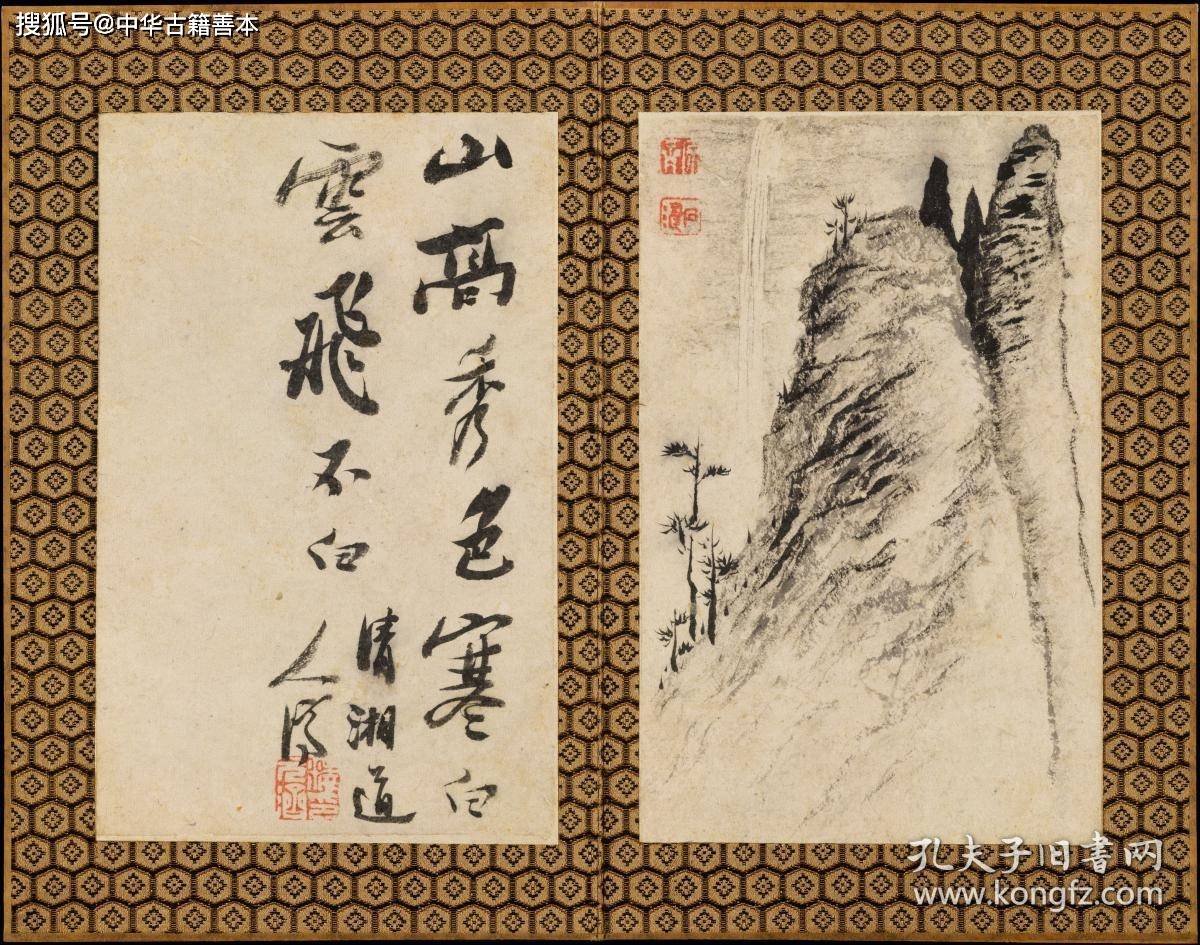 搜狐号@中华古籍善本
山高秀色寒白
雲飛不白
清湘道
人濟
孔夫子旧書网
www.kongfz.com